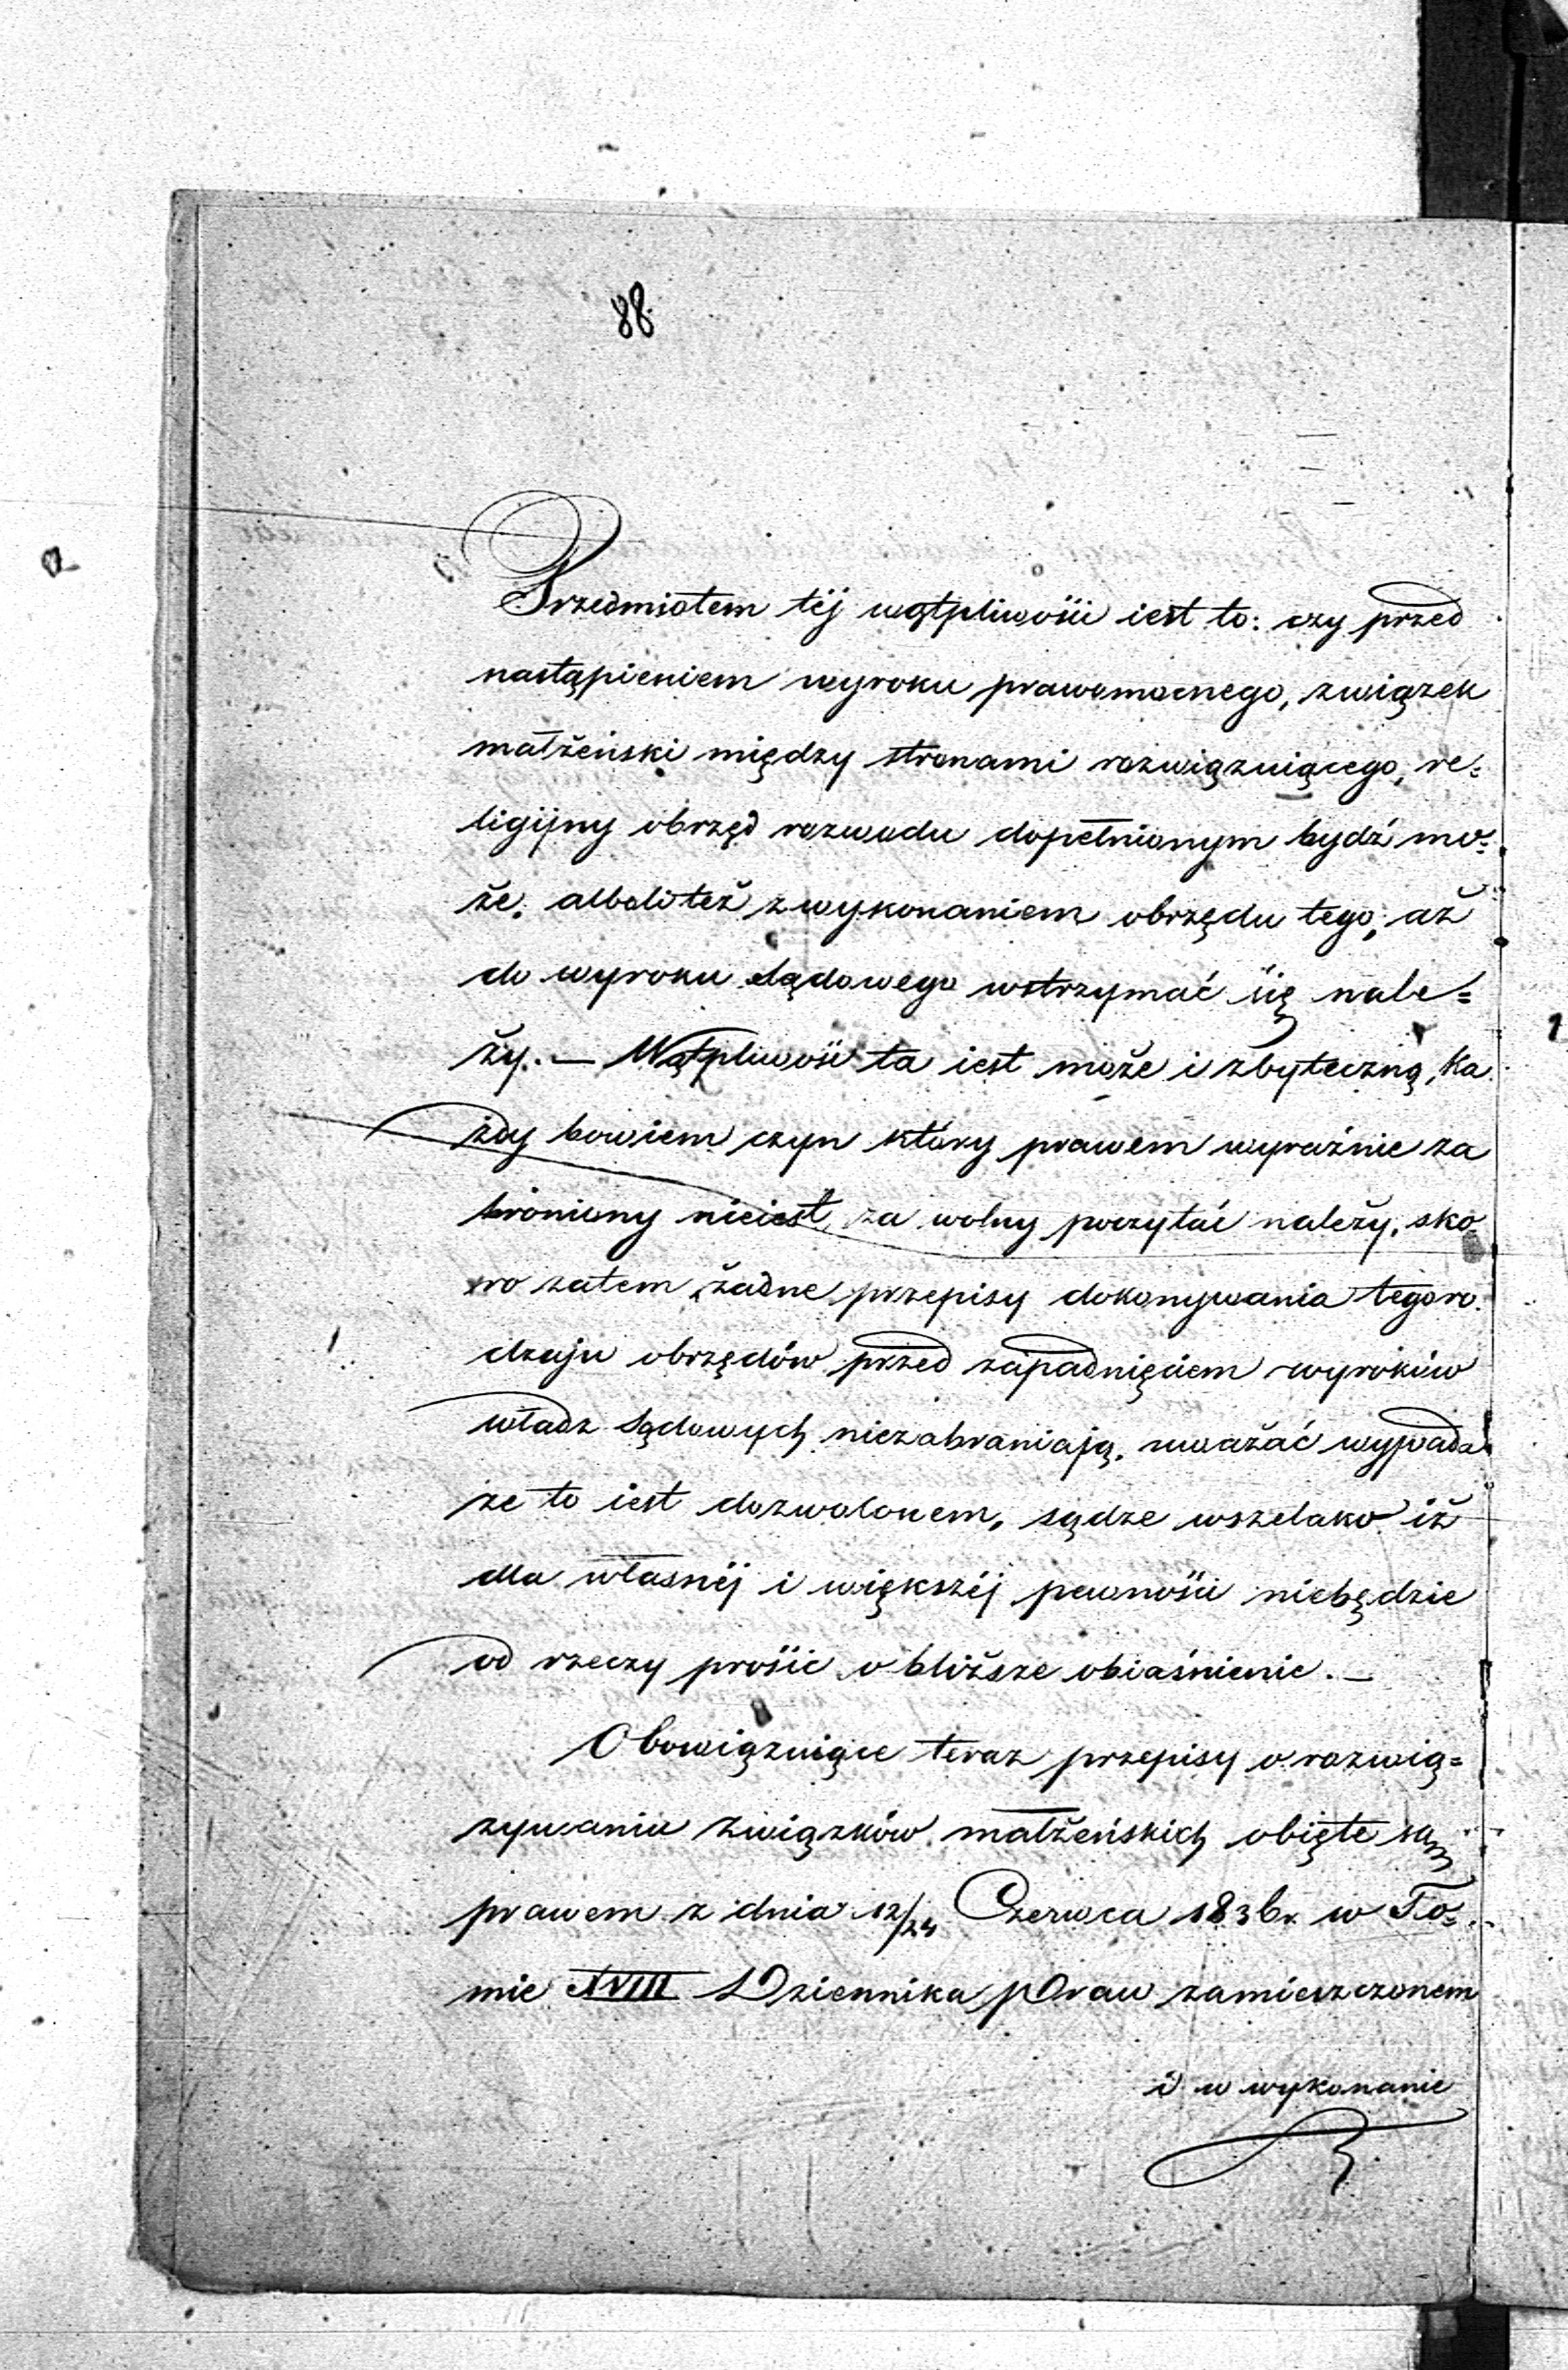 88
Przedmiotem téj wątpliwości iest to: czy przed
nastąpieniem wyroku prawomocnego, związek
małżeński między stronami rozwiązuiącego, re=
ligijny obrzęd rozwodu dopełnionym bydź mo=
że. alboli też z wykonaniem obrzędu tego, aż
do wyroku sądowego wstrzymać się nale=
ży. — Wątpliwość ta iest może i zbyteczną, ka
żdy bowiem czyn który prawem wyraźnie za
broniony nieiest, za wolny poczytać należy, sko
ro zatem żadne przepisy dokonywania tegoro
dzaju obrzędów przed zapadnięciem wyroków
władz sądowych niezabraniają, uważać wypada
że to iest dozwolonem, sądze wszelako iż
dla własnéj i większéj pewności niebędzie
od rzeczy prosić o bliższe obiaśnienie. —
Obowiązuiące teraz przepisy o rozwią=
zywaniu związków małżeńskich obięte są
prawem z dnia 12/24 Czerwca 1836 r. w To=
mie XVIII Dziennika Praw zamieszczonem
i w wykonanie